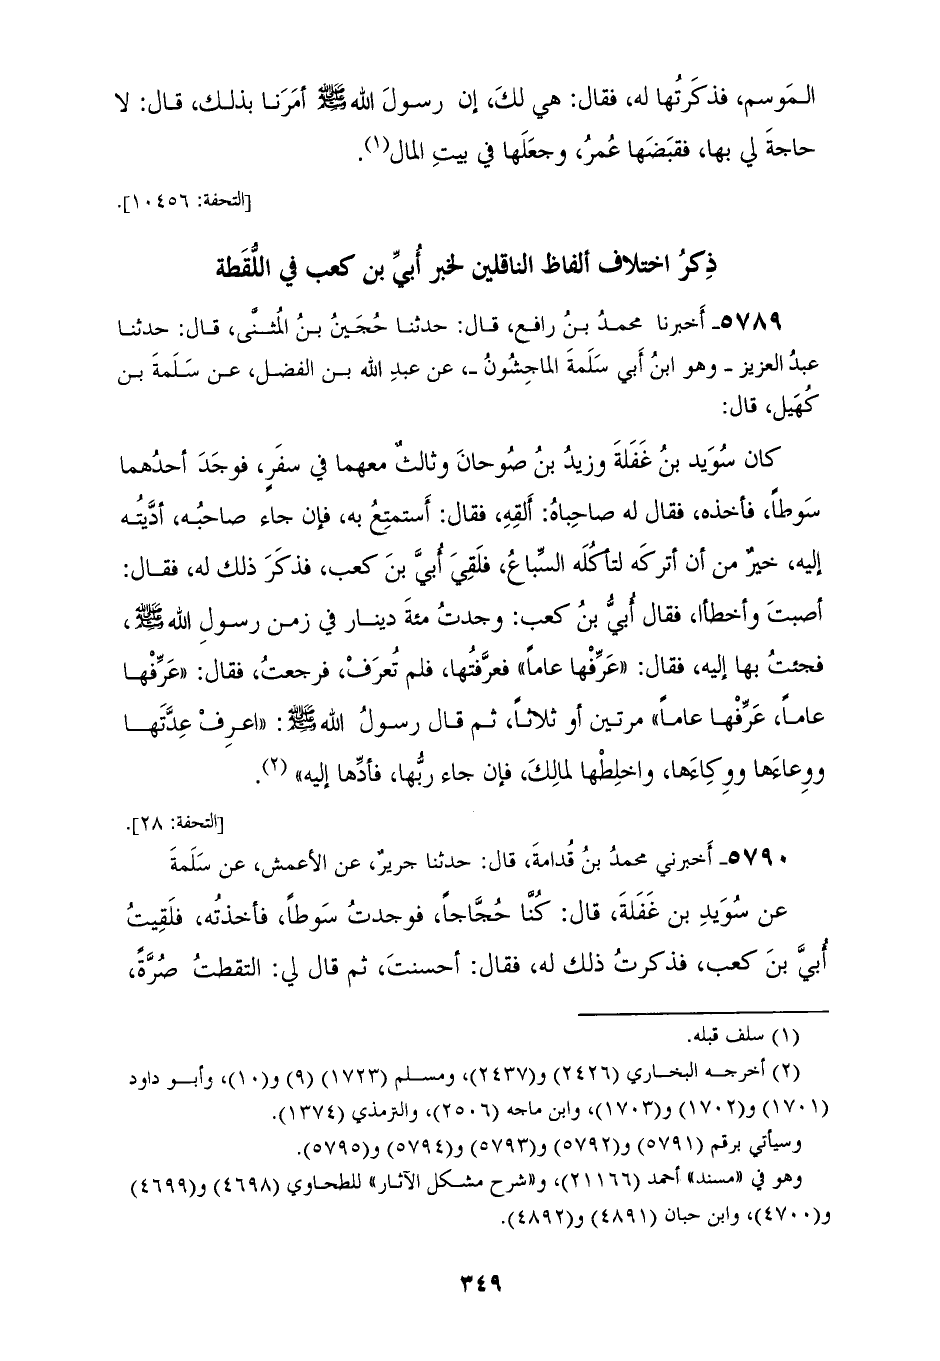 المَوسم، فذكَرتُها له، فقال: هي لكَ، إن رسولَ الله ﷺ أمَرَنا بذلك، قال: لا
حاجةَ لي بها، فقبَضَها عُمرُ، وجعَلَها في بيتِ المال(١).
[التحفة: ١٠٤٥٦].
ذِكرُ اختلاف ألفاظ الناقلين لخبر أُبيِّ بن كعب في اللُّقَطة
٥٧٨٩ـ أَخبرنا محمدُ بنُ رافع، قال: حدثنا حُجَينُ بنُ المُثنَّى، قال: حدثنا
عبدُ العزيز ـ وهو ابنُ أبي سَلَمةَ الماجِشُونُ ـ، عن عبدِ الله بن الفضل، عن سَلَمةَ بن
كُهَيل، قال:
كان سُوَيد بنُ غَفَلَةَ وزيدُ بنُ صُوحانَ وثالثٌ معهما في سفَرٍ، فوجَدَ أحدُهما
سَوطاً، فأخذه، فقال له صاحِباهُ: أَلقِهِ، فقال: أَستمتِعُ به، فإن جاء صاحبُه، أدَّيتُه
إليه، خيرٌ من أن أتركَه لتأكُلَه السِّباعُ، فلَقِيَ أُبيَّ بنَ كعب، فذكَرَ ذلك له، فقال:
أصبتَ وأخطأا، فقال أُبيُّ بنُ كعب: وجدتُ مئةَ دينار في زمن رسولِ الله ﷺ،
فجئتُ بها إليه، فقال: «عَرِّفْها عاماً» فعرَّفتُها، فلم تُعرَفْ، فرجعتُ، فقال: «عَرِّفْها
عاماً، عَرِّفْها عاماً» مرتين أو ثلاثاً، ثم قال رسولُ الله ﷺ: «اعرِفْ عِدَّتَها
ووِعاءَها ووِكاءَها، واخلِطْها لمالِكَ، فإن جاء ربُّها، فأدِّها إليه» (٢).
[التحفة: ٢٨].
٥٧٩٠ـ أَخبرني محمدُ بنُ قُدامةَ، قال: حدثنا جريرٌ، عن الأعمش، عن سَلَمةَ
عن سُوَيدِ بن غَفَلَةَ، قال: كُنَّا حُجَّاجاً، فوجدتُ سَوطاً، فأخذتُه، فلَقِيتُ
أُبيَّ بنَ كعب، فذكرتُ ذلك له، فقال: أحسنتَ، ثم قال لي: التقطتُ صُرَّةً،
(١) سلف قبله.
(٢) أخرجه البخاري (٢٤٢٦) و(٢٤٣٧)، ومسلم (١٧٢٣) (٩) و(١٠)، وأبو داود
(١٧٠١) و(١٧٠٢) و(١٧٠٣)، وابن ماجه (٢٥٠٦)، والترمذي (١٣٧٤).
وسيأتي برقم (٥٧٩١) و(٥٧٩٢) و(٥٧٩٣) و(٥٧٩٤) و(٥٧٩٥).
وهو في «مسند» أحمد (٢١١٦٦)، و«شرح مشكل الآثار» للطحاوي (٤٦٩٨) و(٤٦٩٩)
و(٤٧٠٠)، وابن حبان (٤٨٩١) و(٤٨٩٢).
٣٤٩